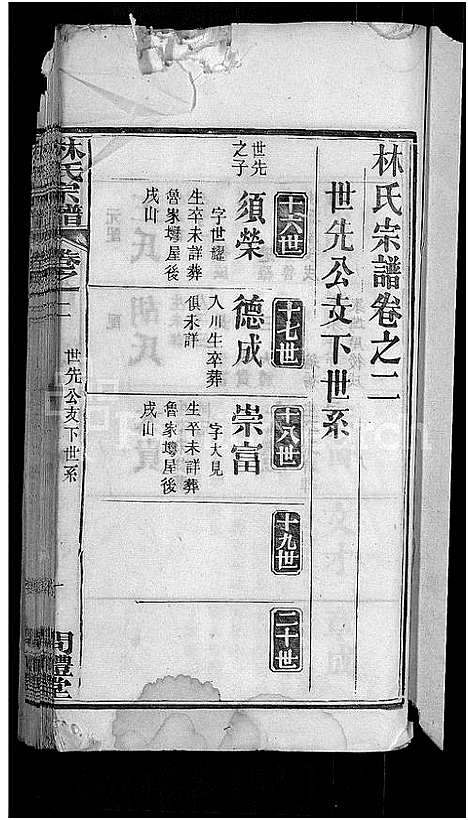 林氏宗譜卷之二
世先公支下世系
十六世
十七世
十八世
十九世
二十世
世先
之子
須榮
字世鐸
生卒未詳葬
魯家塆屋後
戌山
德成
入川生卒葬
俱未詳
崇富
字大見
生卒未詳葬
魯家塆屋後
戌山
林氏宗譜
卷之二
世先公支下世系
問禮堂